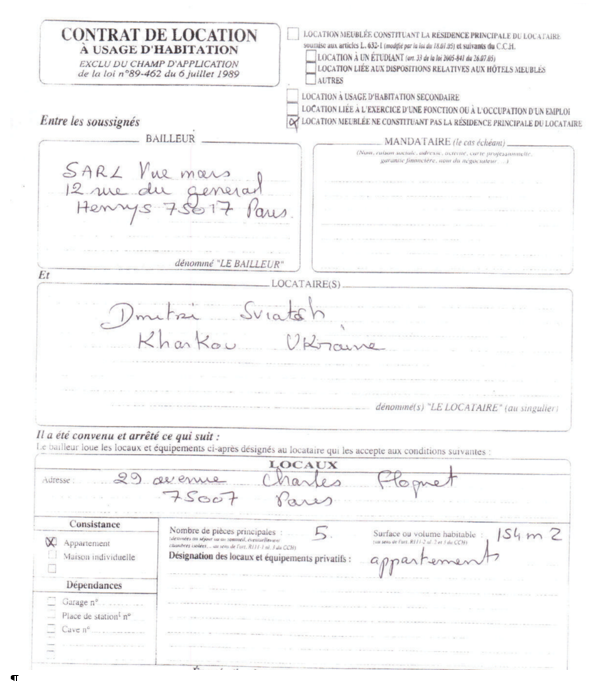 CONTRAT DE LOCATION
À USAGE D'HABITATION
EXCLU DU CHAMP D'APPLICATION
de la loi n°89-462 du 6 juillet 1989
LOCATION MEUBLÉE CONSTITUANT LA RÉSIDENCE PRINCIPALE DU LOCATAIRE
soumise aux articles L. 632-1 (modifié par la loi du 18.01.05) et suivants du C.C.H.
LOCATION À UN ÉTUDIANT (art. 33 de la loi 2005-841 du 26.07.05)
LOCATION LIÉE AUX DISPOSITIONS RELATIVES AUX HÔTELS MEUBLÉS
AUTRES
LOCATION À USAGE D'HABITATION SECONDAIRE
LOCATION LIÉE À L'EXERCICE D'UNE FONCTION OU À L'OCCUPATION D'UN EMPLOI
LOCATION MEUBLÉE NE CONSTITUANT PAS LA RÉSIDENCE PRINCIPALE DU LOCATAIRE
Entre les soussignés
BAILLEUR
SARL Vue mars
12 rue du general
Henrys 75017 Paris
dénommé "LE BAILLEUR"
MANDATAIRE (le cas échéant)
(Nom, raison sociale, adresse, activité, carte professionnelle,
garantie financière, nom du négociateur...)
Et
LOCATAIRE(S)
Dmitri Sviatsh
Kharkov Ukraine
dénommé(s) "LE LOCATAIRE" (au singulier)
Il a été convenu et arrêté ce qui suit :
Le bailleur loue les locaux et équipements ci-après désignés au locataire qui les accepte aux conditions suivantes :
LOCAUX
Adresse : 29 avenue Charles Floquet
75007 Paris
Consistance
Appartement
Maison individuelle
Dépendances
Garage n°
Place de station¹ n°
Cave n°
Nombre de pièces principales : 5.
Surface ou volume habitable : 154 m2
Désignation des locaux et équipements privatifs : appartement
¶